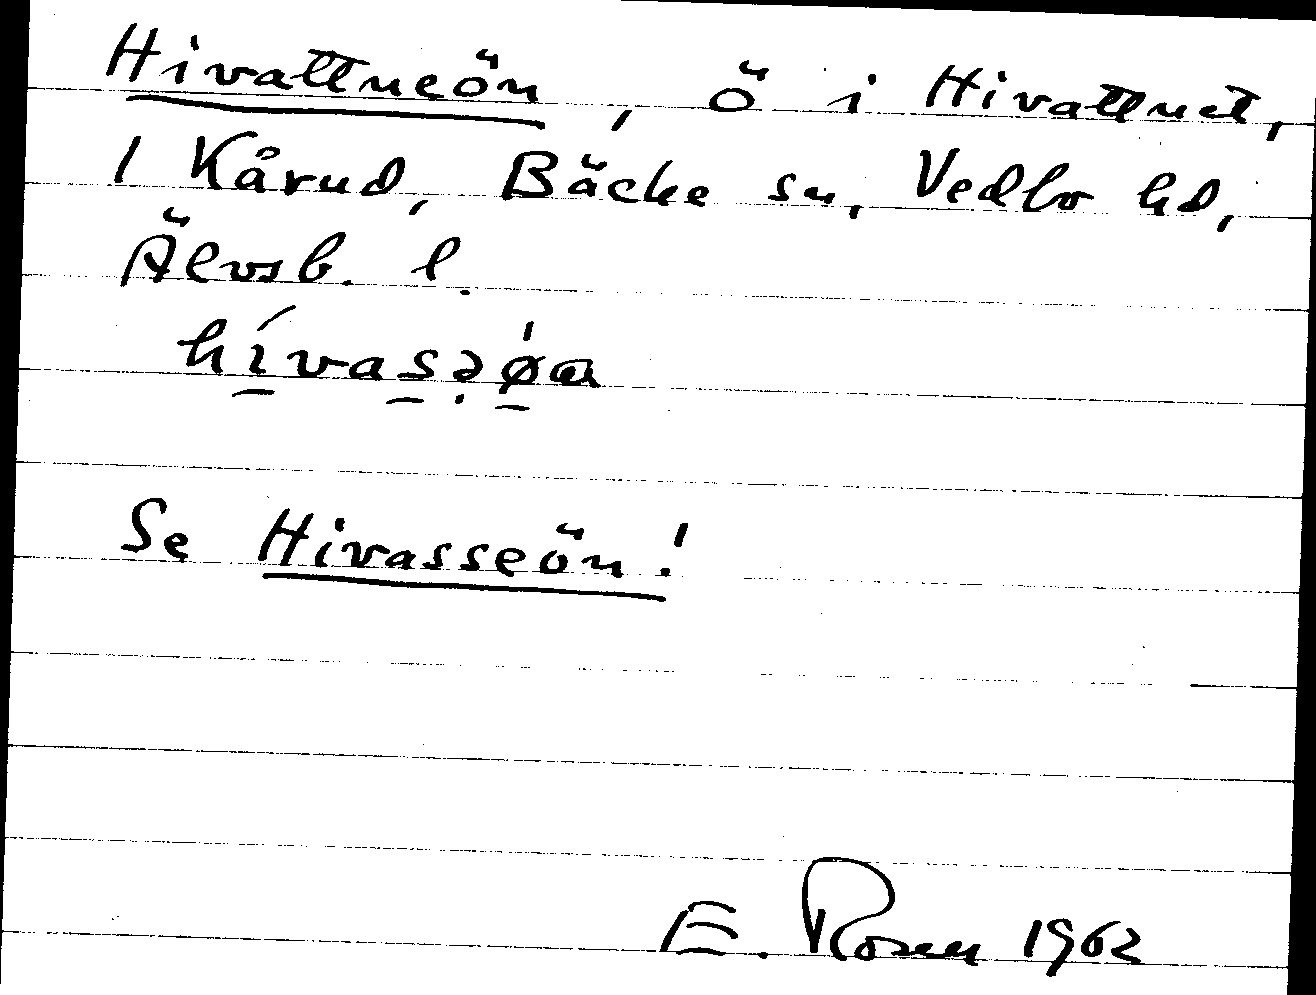 Hivattneön, ö i Hivattnet,
1 Kårud, Bäcke sn, Vedbo hd,
Älvsb. l.
Se Hivasseön!
E. Rosen 1962